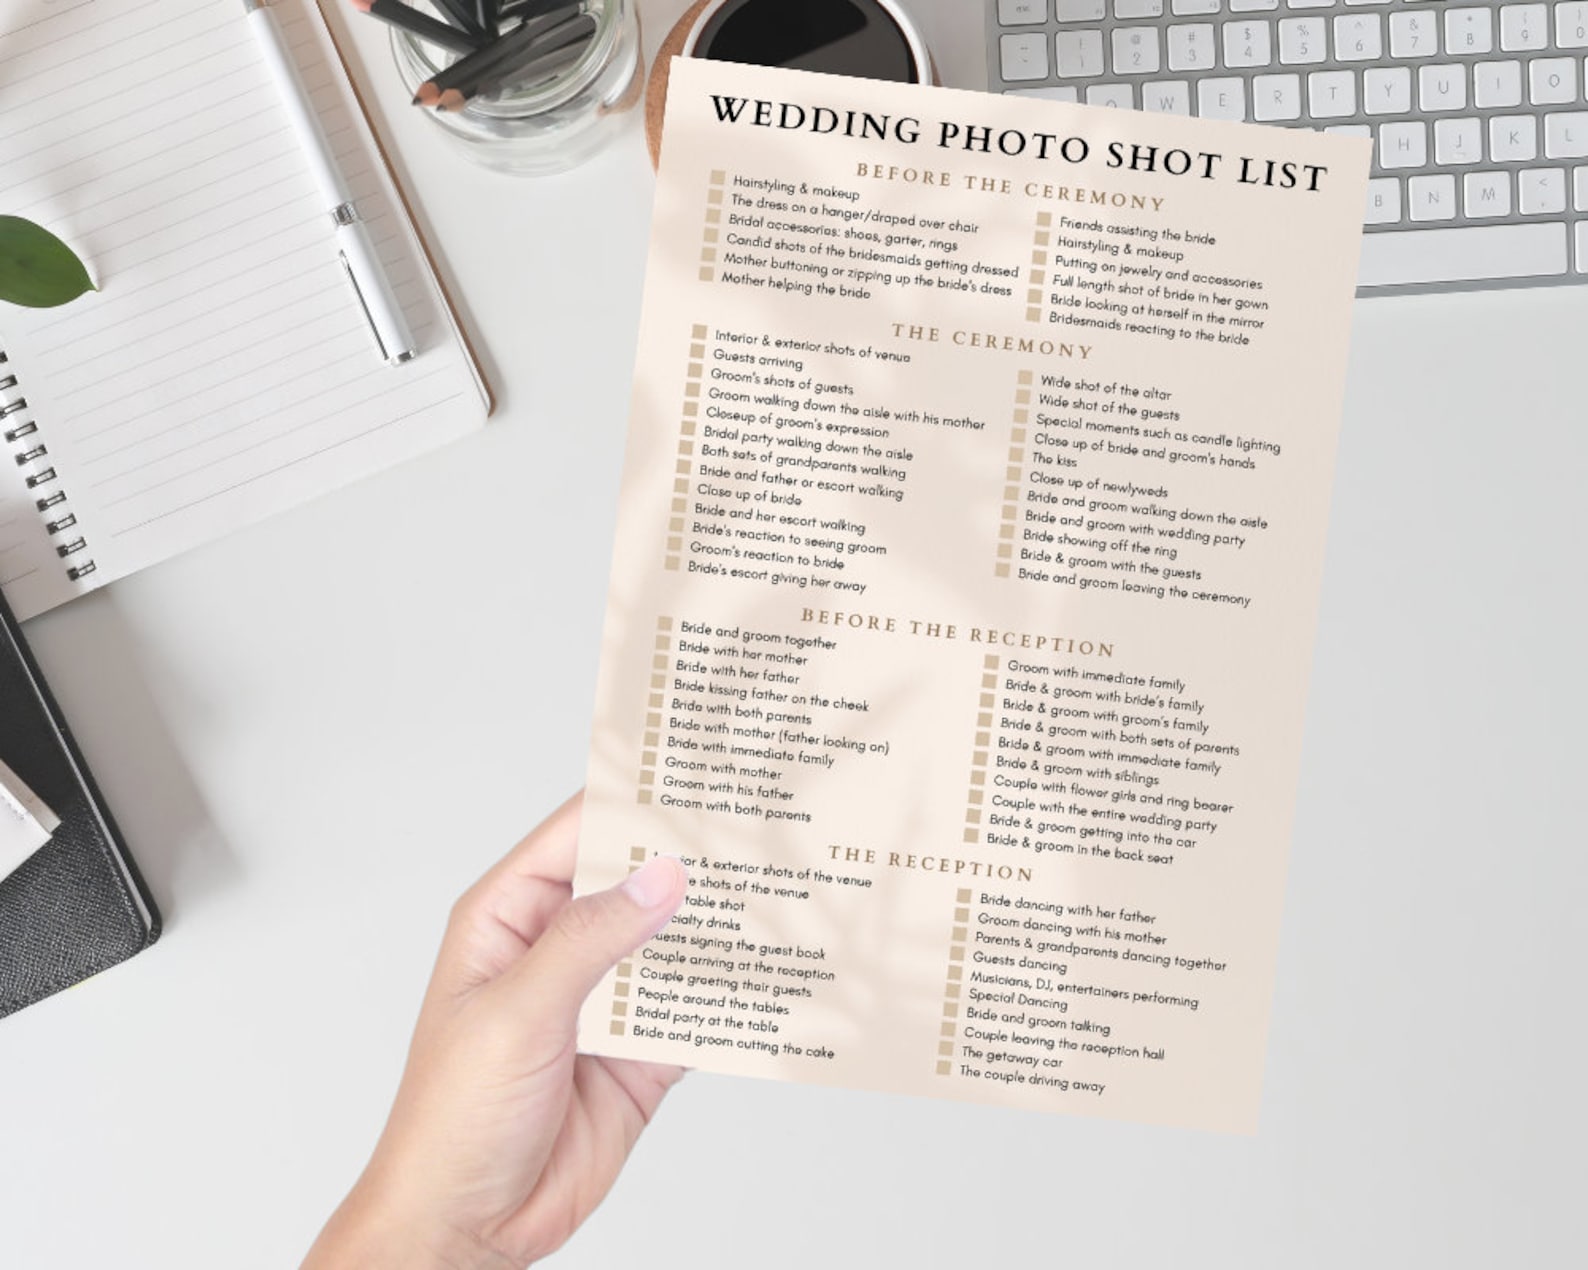 WEDDING PHOTO SHOT LIST
BEFORE THE CEREMONY
Hairstyling & makeup
The dress on a hanger/draped over chair
Bridal accessories: shoes, garter, rings
Candid shots of the bridesmaids getting dressed
Mother buttoning or zipping up the bride's dress
Mother helping the bride
Friends assisting the bride
Hairstyling & makeup
Putting on jewelry and accessories
Full length shot of bride in her gown
Bride looking at herself in the mirror
Bridesmaids reacting to the bride
THE CEREMONY
Interior & exterior shots of venue
Guests arriving
Groom's shots of guests
Groom walking down the aisle with his mother
Closeup of groom's expression
Bridal party walking down the aisle
Both sets of grandparents walking
Bride and father or escort walking
Close up of bride
Bride and her escort walking
Bride's reaction to seeing groom
Groom's reaction to bride
Bride's escort giving her away
Wide shot of the altar
Wide shot of the guests
Special moments such as candle lighting
Close up of bride and groom's hands
The kiss
Close up of newlyweds
Bride and groom walking down the aisle
Bride and groom with wedding party
Bride showing off the ring
Bride & groom with the guests
Bride and groom leaving the ceremony
BEFORE THE RECEPTION
Bride and groom together
Bride with her mother
Bride with her father
Bride kissing father on the cheek
Bride with both parents
Bride with mother (father looking on)
Bride with immediate family
Groom with mother
Groom with his father
Groom with both parents
Groom with immediate family
Bride & groom with bride's family
Bride & groom with groom's family
Bride & groom with both sets of parents
Bride & groom with immediate family
Bride & groom with siblings
Couple with flower girls and ring bearer
Couple with the entire wedding party
Bride & groom getting into the car
Bride & groom in the back seat
THE RECEPTION
& exterior shots of the venue
shots of the venue
table shot
drinks
signing the guest book
Couple arriving at the reception
Couple greeting their guests
People around the tables
Bridal party at the table
Bride and groom cutting the cake
Bride dancing with her father
Groom dancing with his mother
Parents & grandparents dancing together
Guests dancing
Musicians, DJ, entertainers performing
Special Dancing
Bride and groom talking
Couple leaving the reception hall
The getaway car
The couple driving away
! @ # $ % ^ & * ( )
1 2 3 4 5 6 7 8 9 0
W E R T Y U I O
H J K L
B N M <